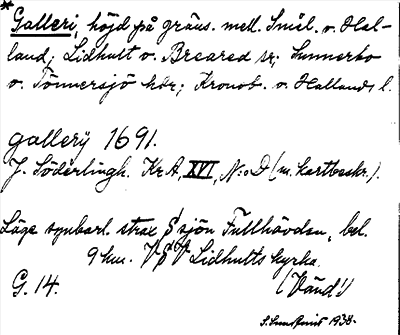 *Galleri, höjd på gräns. mell. Smål. o. Hal-
land; Lidhult o. Breared sr; Sunnerbo
o. Tönnersjö hdr; Kronob. o. Hallands l.
gallerÿ 1691.
J. Söderlingh. Kr.A, XVI, N:o D (m. kartbeskr.).
Läge synbarl. strax S sjön Fullhövden, bel.
9 km. VSV Lidhults kyrka.
G. 14.
(Vänd!)
1938.